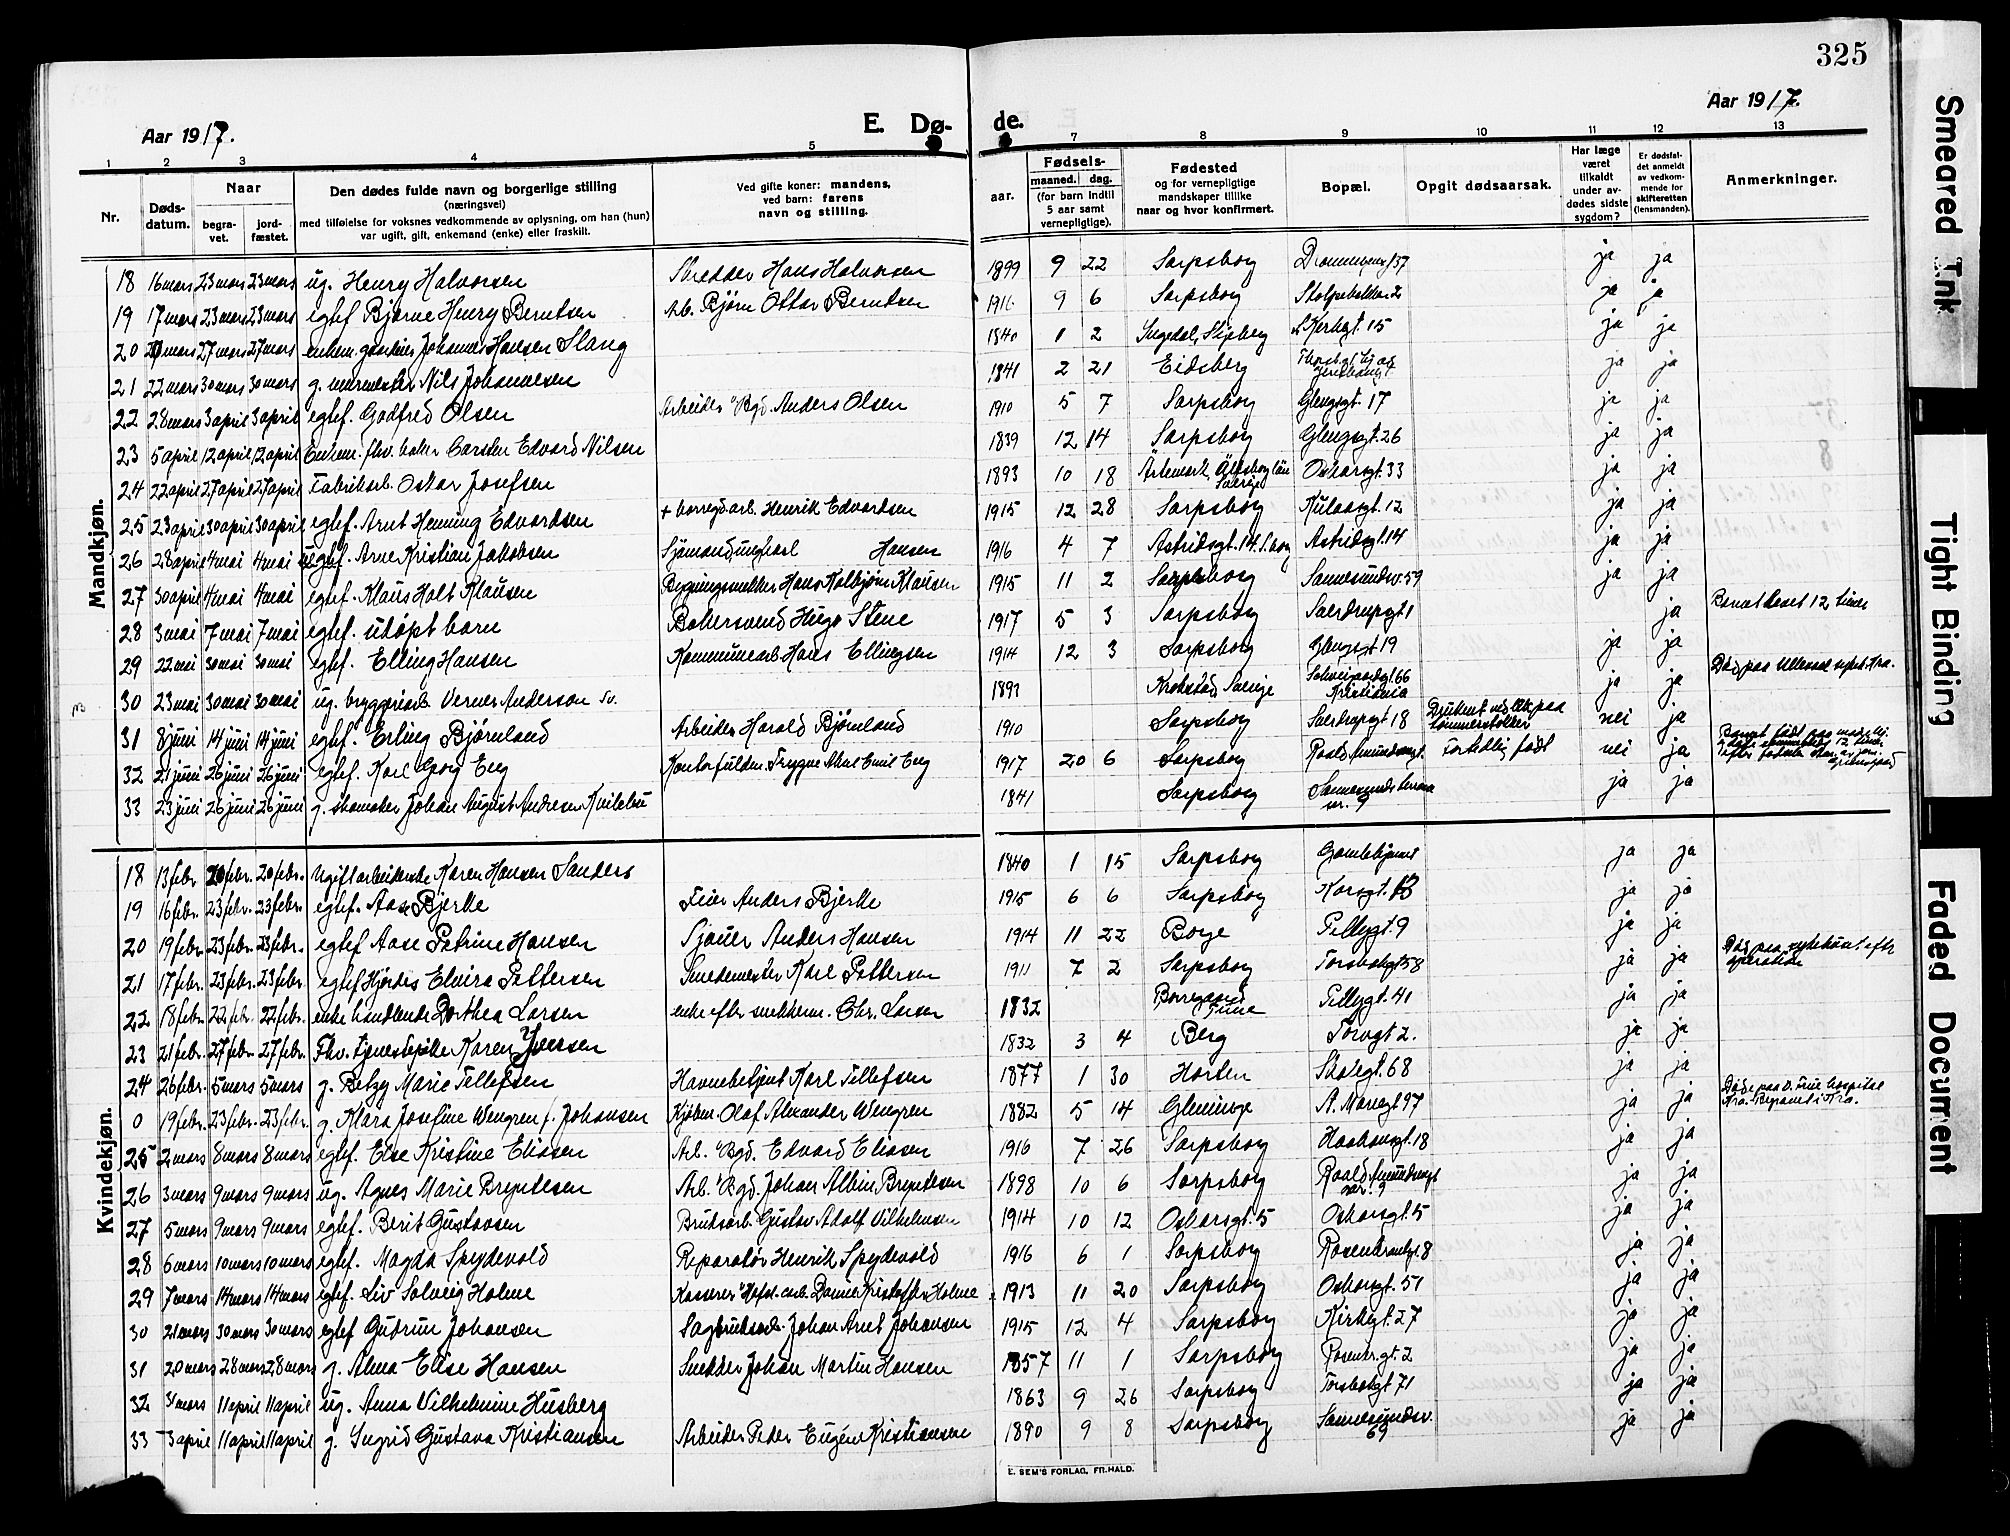 325
Aar 1917. E. Dø- de. Aar 1917.
1 2 3 4 5 7 8 9 10 11 12 13
Nr. Dødsdatum. Naar begravet. jordfæstet. Den dødes fulde navn og borgerlige stilling (næringsvei) med tilføielse for voksnes vedkommende av oplysning, om han (hun) var ugift, gift, enkemand (enke) eller fraskilt. Ved gifte koner: mandens, ved barn: farens navn og stilling. aar. Fødsels- maaned. dag. (for barn indtil 5 aar samt vernepligtige). Fødested og for vernepligtige mandskaper tillike naar og hvor konfirmert. Bopæl. Opgit dødsaarsak. Har læge været tilkaldt under avdødes sidste sygdom? Er dødsfaldet anmeldt av vedkommende for skifteretten (lensmanden). Anmerkninger.
Mandkjøn.
18 16 mars 23 mars 23 mars ug. Henry Halvorsen Skredder Hans Halvorsen 1899 9 22 Sarpsborg 37 ja ja
19 17 mars 23 mars 23 mars egtef Bjarne Henry Berntsen Arb. Bjørn Ottar Berntsen 1916 9 6 Sarpsborg ja ja
20 mars 27 mars 27 mars enkem. Johannes Hansen Slang 1840 1 2 Ingedal, Skjeberg Kirkegt. 15 ja ja
21 22 mars 30 mars 30 mars g. murmester Nils Johannesen 1841 2 21 Eidsberg ja ja
22 28 mars 3 april 3 april egtef. Godfred Olsen Arbeider Bgd. Anders Olsen 1910 5 7 Sarpsborg Glengsgt. 17 ja ja
23 5 april 12 april 12 april Enkem. fhv. baker Carsten Edvard Nilsen 1839 12 14 Sarpsborg Glengsgt. 26 ja ja
24 22 april 27 april 27 april Fabrikarb. Oskar Josefsen 1893 10 18 Ärtemark Älfsborg län Sverige Oskarsgt. 33 ja ja
25 23 april 30 april 30 april egtef. Arnt Henning Edvardsen + borregdarb. Henrik Edvardsen 1915 12 28 Sarpsborg Kulaasgt. 12 ja ja
26 28 april 4 mai 4 mai uegtef. Arne Kristian Jakobsen Sjømand, ungkarl Hansen 1916 4 7 Astridsgt. 14. S.borg Astridsgt. 14 ja ja
27 30 april 4 mai 4 mai egtef. Klaus Holt Klausen Bygningssnekker Hans Kolbjørn Klausen 1915 11 2 Sarpsborg Sannesundsv. 59 ja ja
28 3 mai 7 mai 7 mai egtef. udøpt barn Bakersvend Hugo Stene 1917 5 3 Sarpsborg 1 ja Barnet levet 12 timer
29 22 mai 30 mai 30 mai egtef. Elling Hansen Kommunearb Hans Ellingsen 1914 12 3 Sarpsborg Glengsgt 19 ja ja
30 23 mai 30 mai 30 mai ug. bryggeriarb. Verner Anderson sv. 1893 Krokstad Sverige Schweigaardsgt. 66 Kristiania ja ja Død paa Ullevaal sykeh. Kra.
31 8 juni 14 juni 14 juni egtef. Erling Bjørnland Arbeider Harald Bjørnland 1910 Sarpsborg 18 Druknet ved lek paa tømmerstokker nei ja
32 21 juni 26 juni 26 juni egtef. Karl Georg Eeg Kontorfuldm. Trygve Emil Eeg 1917 20 6 Sarpsborg Roald Amundsensgt. For tidlig født nei ja
33 23 juni 26 juni 26 juni g. skomaker Johan August Andresen Kvilebu 1841 Sarpsborg Sannesunds nr. 9 ja ja
Kvindekjøn.
18 13 febr. 20 febr. 20 febr. Ugift arbeiderske Karen Hansen Sanders 1840 1 15 Sarpsborg Gamlehjemmet ja ja
19 16 febr. 23 febr. 23 febr. egtef. Aase Bjerke Feier Anders Bjerke 1915 6 6 Sarpsborg Korsgt. ja ja
20 19 febr. 23 febr. 23 febr. egtef Aase Petrine Hansen Sjauer Anders Hansen 1914 11 22 Borge Pellygt. 9 ja ja
21 17 febr. 23 febr. 23 febr. egtef Hjørdis Elvira Pettersen Smedemester Karl Pettersen 1911 7 2 Sarpsborg Torsbekgt 58 ja ja Død paa sykehuset efter operation
22 18 febr. 22 febr. 22 febr. enke handlende Dorthea Larsen enke efter snekkerm. Chr. Larsen 1832 Borregaard Tune Pellygt. 41 ja ja
23 21 febr. 27 febr. 27 febr. Fhv. tjenestepike Karen Iversen 1832 3 4 Berg Torvgt 2. ja ja
24 26 febr. 5 mars 5 mars g. Betzy Marie Tellefsen Havnebetjent Karl Tellefsen 1877 1 30 Horten Skolegt. 68 ja ja
0 19 febr. 23 febr. 23 febr. g. Klara Josefine Wengren f. Johansen Kjøbm. Olaf Alexander Wengren 1882 5 14 Glemminge A. Mariegt 97 ja ja Død paa V. Frue hospital Kra. Begravet i Kra.
25 2 mars 8 mars 8 mars egtef. Else Kristine Eliasen Arb. Bgd. Edvard Eliasen 1916 7 26 Sarpsborg Haakonsgt. 18 ja ja
26 3 mars 9 mars 9 mars ug. Agnes Marie Bryntesen Arb. Bgd. Johan Albin Bryntesen 1898 10 6 Sarpsborg Roald Amundsensgt nr. 9 ja ja
27 5 mars 9 mars 9 mars egtef. Berit Gustavsen Bruksarb. Gustav Adolf Vilhelmsen 1914 10 12 Oskarsgt. 5 Oskarsgt. 5 ja ja
28 6 mars 10 mars 10 mars egtef. Magda Spydevold Reparatør Henrik Spydevold 1916 6 1 Sarpsborg Rosenkrantzgt 8 ja ja
29 7 mars 14 mars 14 mars egtef. Liv Solveig Holme Kasserer Kristoffer Holme 1913 11 20 Sarpsborg Oskarsgt. 51 ja ja
30 21 mars 30 mars 30 mars egtef Gudrun Johansen Sagbruksarb. Johan Arnt Johansen 1915 12 4 Sarpsborg Kirkegt. 27 ja ja
31 20 mars 28 mars 28 mars g. Alma Elise Hansen Snekker Johan Martin Hansen 1857 11 1 Sarpsborg Rosenkr.gt. 2 ja ja
32 31 mars 11 april 11 april ug. Anna Vilhelmine Husberg 1863 9 26 Sarpsborg Torsbekgt 71 ja ja
33 3 april 11 april 11 april g. Ingrid Gustava Kristiansen Arbeider Peder Eugén Kristiansen 1890 9 8 Sarpsborg Sannesundsv. 69 ja ja
E. SEM'S FORLAG, FR.HALD.
Smeared Ink
Tight Binding
Faded Document